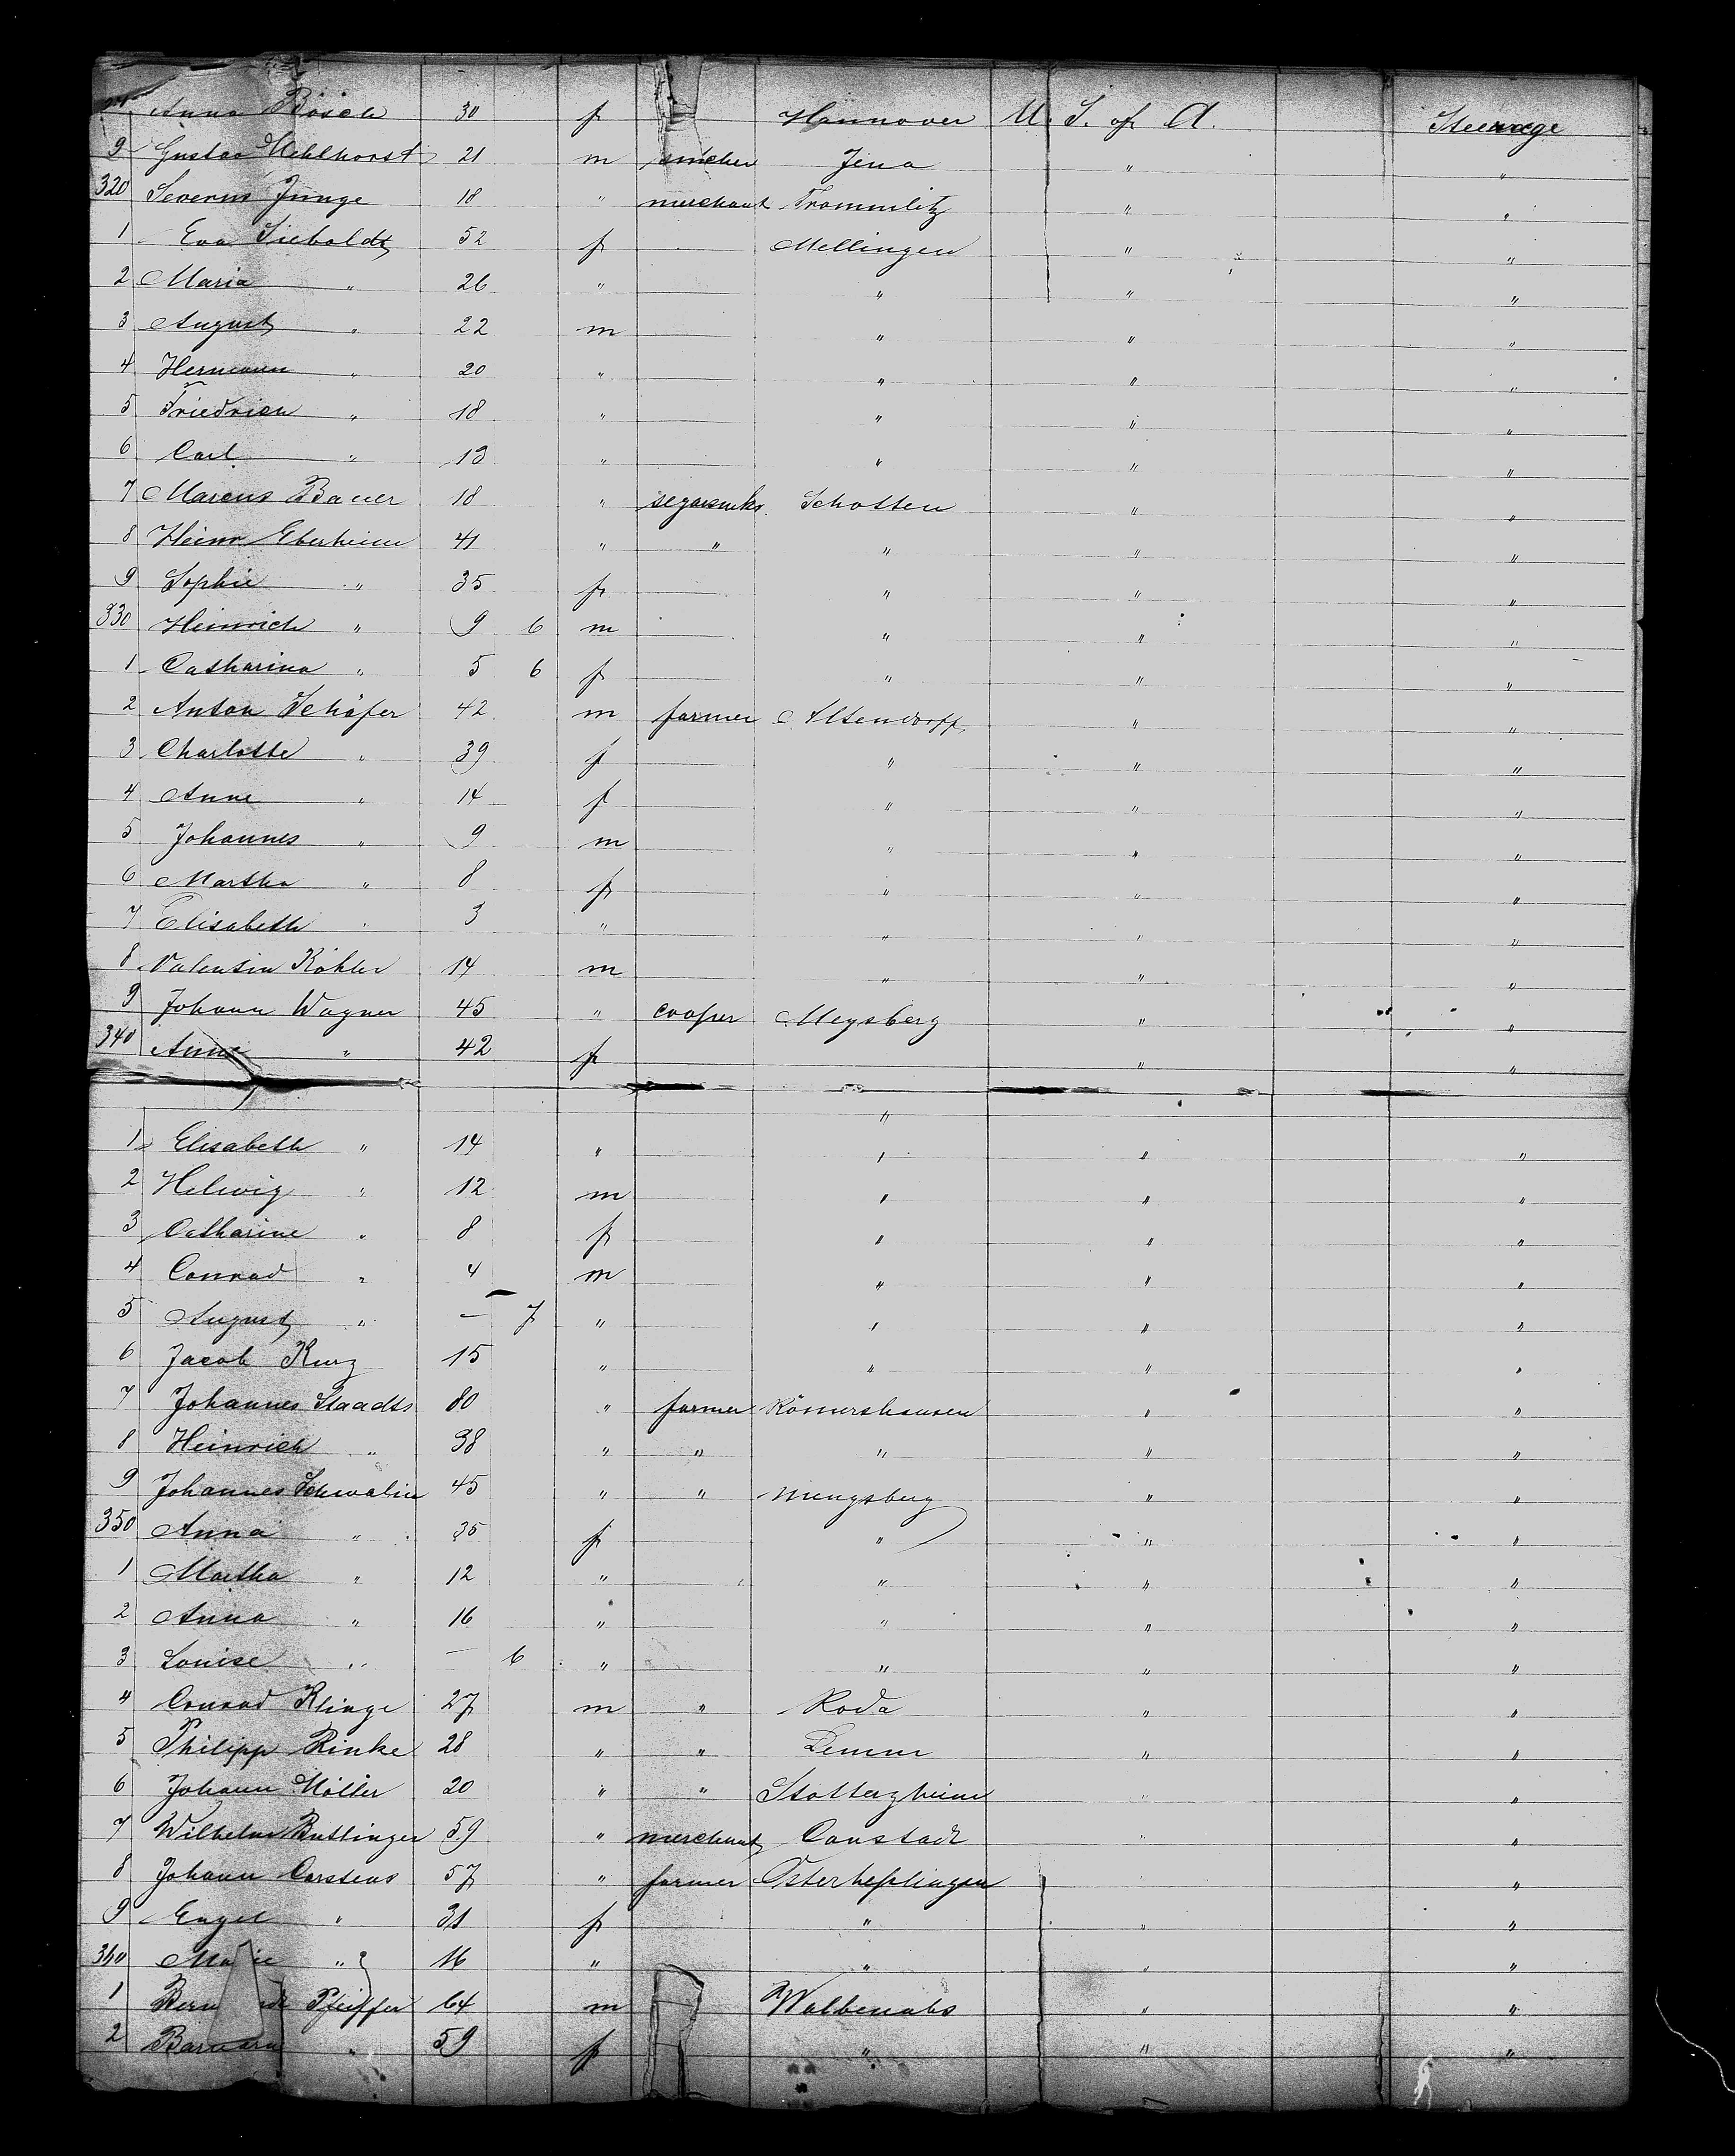 Anna Bösch 30 f Hannover U. S. of A. Steerage
9 Gustav Mehlhorst 21 m Jena " "
320 Severus Junge 18 " merchant Trommlitz " "
1 Eva Sieboldt 52 f Mellingen " "
2 Maria " 26 " " " "
3 August " 22 m " " "
4 Hermann " 20 " " " "
5 Friedrich " 18 " " " "
6 Carl " 13 " " " "
7 Marcus Bauer 18 " segarmkr. Schotten " "
8 Heinr Eberheim 41 " " " " "
9 Sophie " 35 f " " "
330 Heinrich " 9 6 m " " "
1 Catharina " 5 6 f " " "
2 Anton Schäfer 42 m farmer Altendorff " "
3 Charlotte " 39 f " " "
4 Anne " 14 f " " "
5 Johannes " 9 m " " "
6 Martha " 8 f " " "
7 Elisabeth " 3 " " " "
8 Valentin Köhler 14 m " " "
9 Johann Wagner 45 " cooper Meysberg " "
340 Anna " 42 f " "
"
1 Elisabeth " 14 " " " "
2 Helwig " 12 m " " "
3 Catharine " 8 f " " "
4 Conrad " 4 m " " "
5 August " — 7 " " " "
6 Jacob Kurz 15 " " " "
7 Johannes Staadts 80 " farmer Römershausen " "
8 Heinrich " 38 " " " " "
9 Johannes Schwalm 45 " " Mengsberg " "
350 Anna " 35 f " " "
1 Martha " 12 " " " "
2 Anna " 16 " " " "
3 Louise " — 6 " " " "
4 Conrad Klinge 27 m " Roda " "
5 Philipp Rinke 28 " " " "
6 Johann Möller 20 " " Stotterzheim " "
7 Wilhelm Buttlinger 59 " merchant Canstadt " "
8 Johann Carstens 57 " farmer Osterheßlingen " "
9 Engel " 31 f " " "
360 Marie " 16 " " " "
1 Pfeiffer 64 m " "
2 Barbara " 59 f " " "